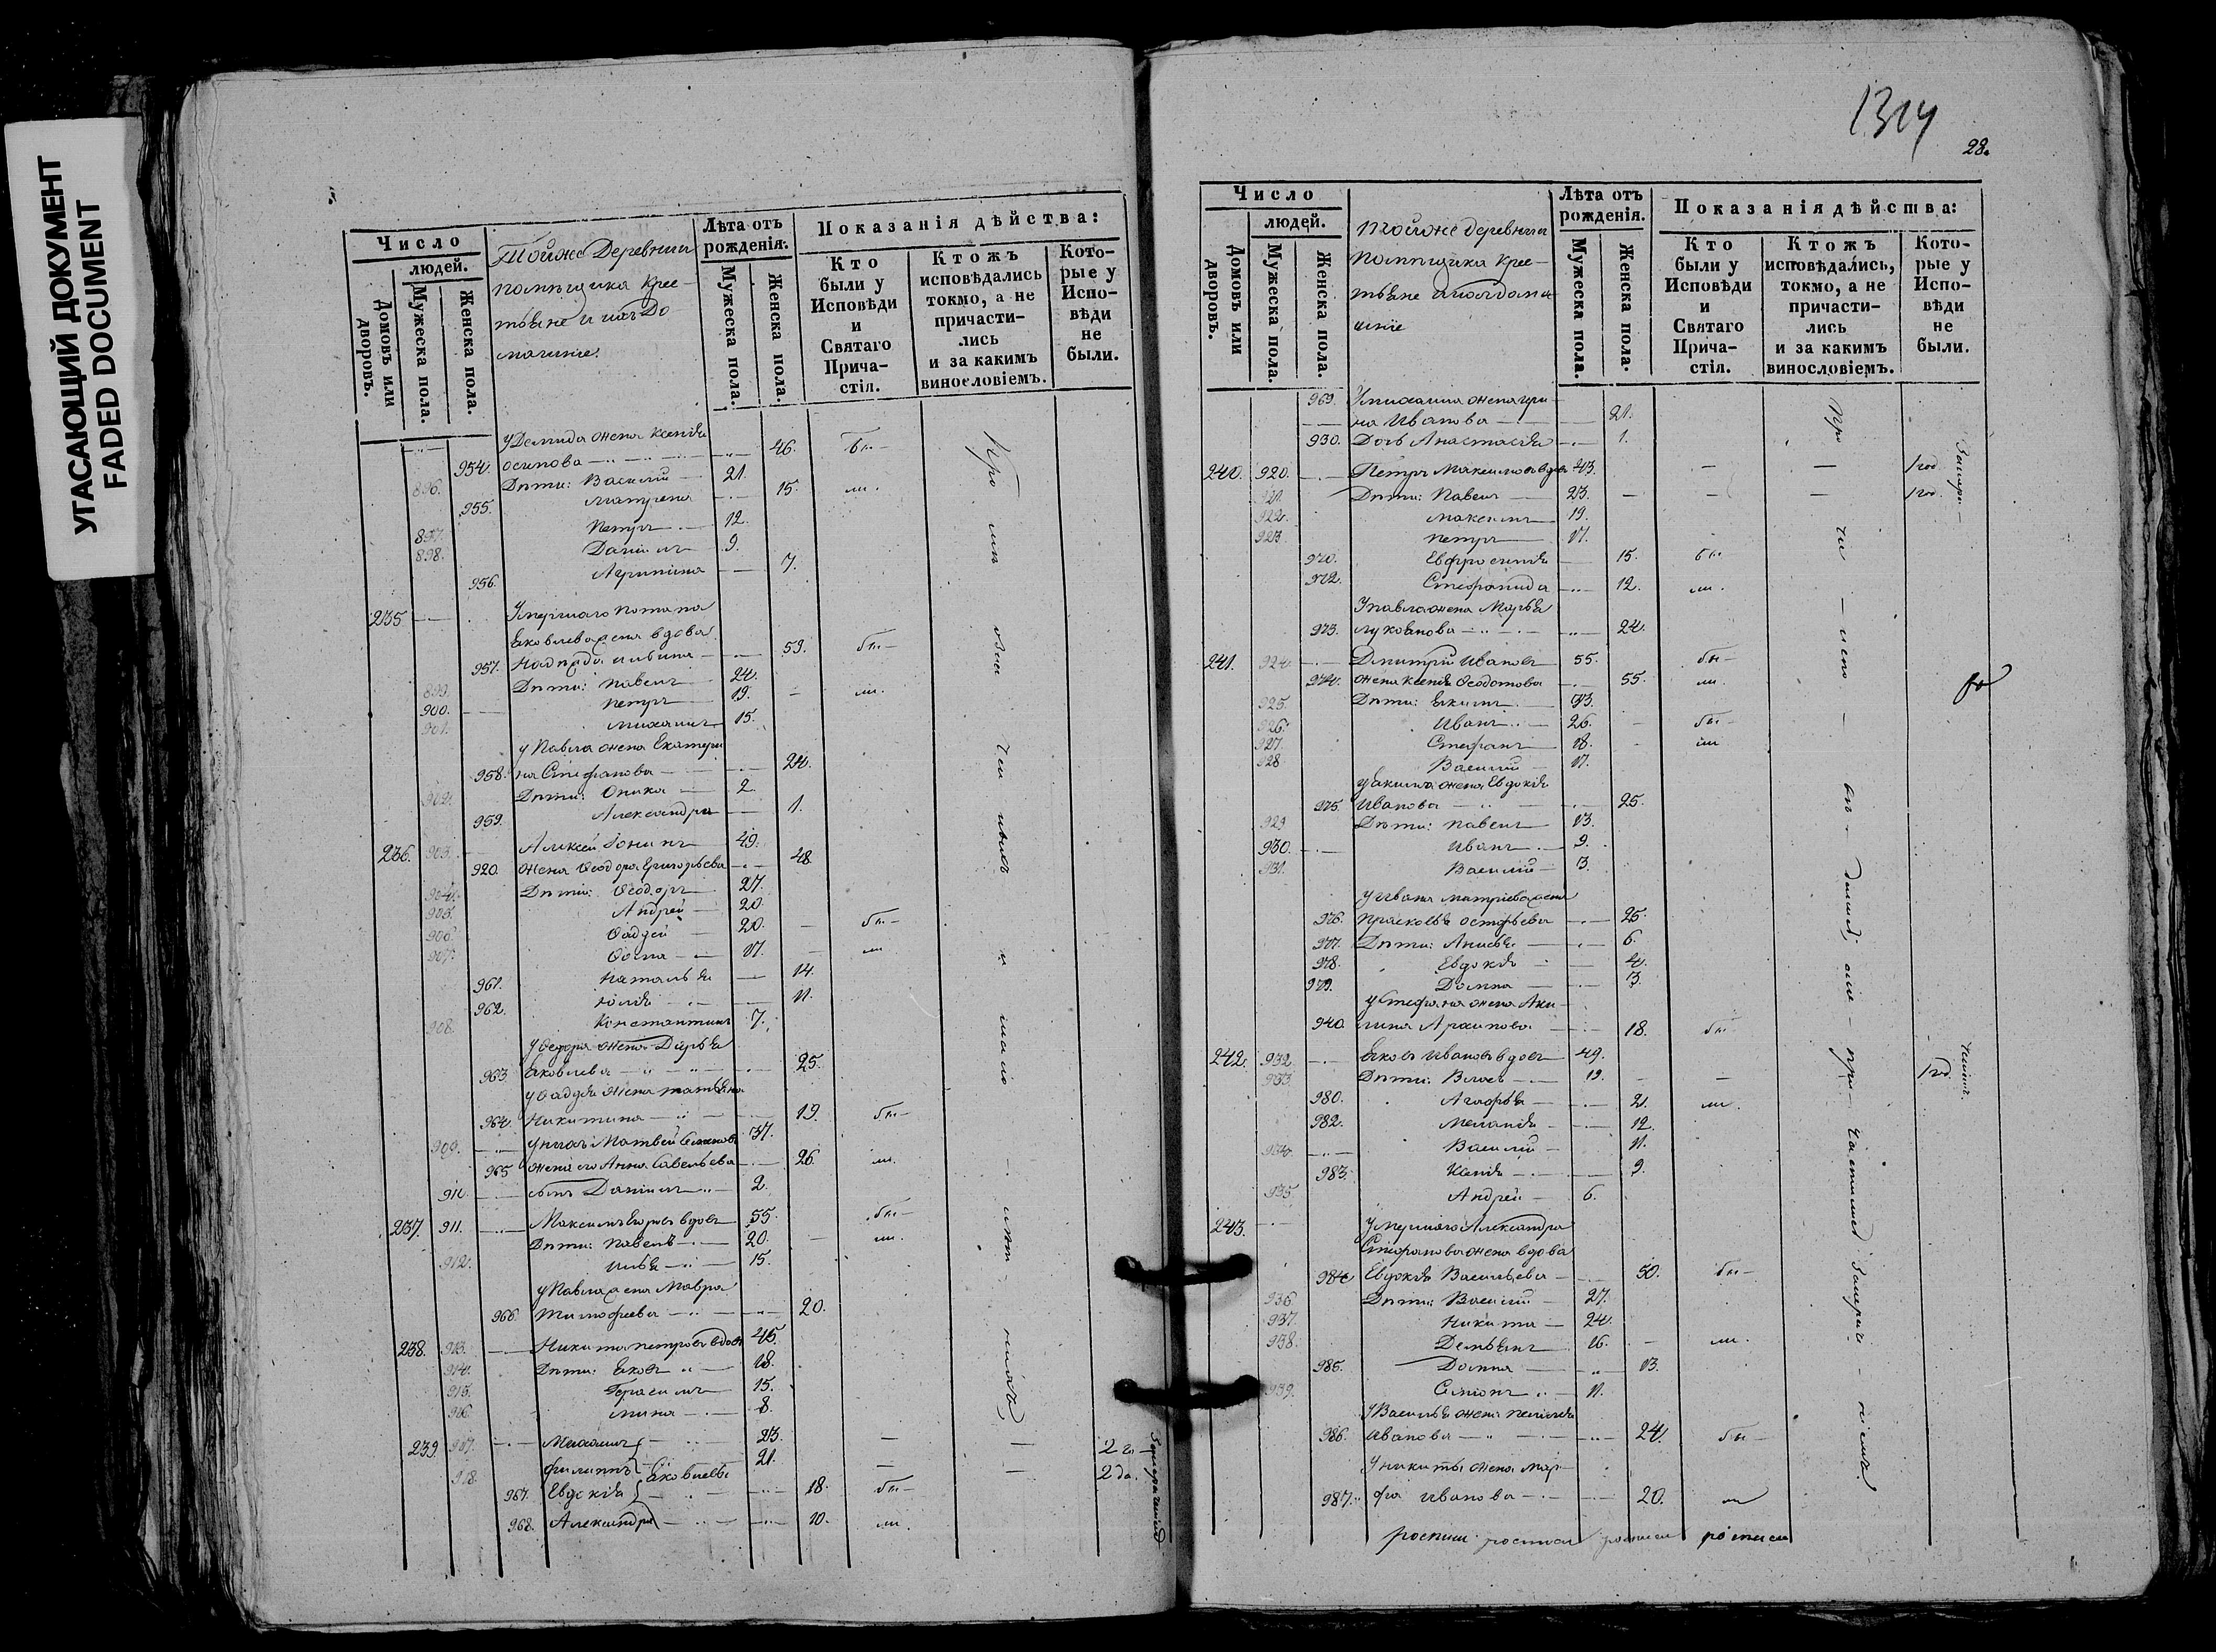 УГАСАЮЩИЙ ДОКУМЕНТ
FADED DOCUMENT
Число
людей.
Домовъ или дворовъ.
Мужеска пола.
Женска пола.
Тойже Деревни
помѣщика Крес-
тьяне и ихъ До
машніе.
Лѣта отъ рожденія.
Мужеска пола.
Женска пола.
Показанія дѣйства:
Кто были у Исповѣди и Святаго Прича-стія.
Ктожъ исповѣдались токмо, а не причасти-лись и за какимъ винословіемъ.
Кото-рые у Испо-вѣди не были.
у Демида жена Ксенія
954. Осипова 46. бы-
896. Дѣти: Василій 21.
955. Матрена 15. ли.
897. Петръ 12.
898. Даніилъ 9.
956. Агрипина 7.
235 Умершаго Потапа
Яковлева жена вдова
957. Надежда Ильина 59. бы-
899. Дѣти: Павелъ 24.
900. Петръ 19. ли.
901. Михаилъ 15.
у Павла жена Екатери
958. на Стефанова 24.
902. Дѣти: Аника 2.
959. Александра 1.
236. 903. Алексей Фоминъ 49.
920. Жена Ѳеодора Григорьева 48
904. Дѣти: Ѳеодоръ 27.
905. Андрей 20.
906. Ѳадей 20. бы-
907. Ѳома 17. ли
961. Наталья 14.
962. Юлія 11.
908. Константинъ 7.
у Ѳедора жена Дарья
963 Яковлева 25.
у Ѳаддея жена Татьяна
964. Никитина 19. бы-
909. у нихъ Матвей 37.
965 жена его Анна Савельева 26. ли.
910. сынъ Даніилъ 2.
237. 911. Максимъ вдовъ 55. бы-
Дѣти: Павелъ 20. ли.
912. Илья 15.
у Павла жена Мавра
966. Тимофеева 20.
238. 913. Никита Петровъ вдовъ 45.
914. Дѣти: Яковъ 18.
915. Герасимъ 15.
916. Мина 8.
239. 917. Михаилъ 23.
918. Филиппъ Яковлевы 21.
967. Евдокія 18. бы-
968. Александра 10. ли.
1314
28.
Число
людей.
Домовъ или дворовъ.
Мужеска пола.
Женска пола.
Тойже Деревни
Помѣщика Крес-
тьяне и ихъ дома
шніе
Лѣта отъ рожденія.
Мужеска пола.
Женска пола.
Показанія дѣйства:
Кто были у Исповѣди и Святаго Прича-стія.
Ктожъ исповѣдались, токмо, а не причасти-лись и за какимъ винословіемъ.
Кото-рые у Испо-вѣди не были.
969. У михаила жена Ири
на Иванова 21.
930. Дочь Анастасія 1.
240. 920. Петръ Максимовъ вдовъ 43. 1 год
921. Дѣти: Павелъ 23. 1 год.
922. Максимъ 19.
923. Петръ 17.
970. Евфросинія 15. бы
972. Стефанида 12. ли.
У павла жена Марья
973. Лукьянова 24.
241. 924. Дмитрій Ивановъ 55. бы-
974. жена Ксенія Ѳеодотова 55. ли
925. Дѣти: Якимъ
926. Иванъ 26. бы-
927. Стефанъ 18. ли
928 Василій 17.
у Якима жена Евдокія
975. Иванова 25.
929 Дѣти: Павелъ 13.
930. Иванъ 9.
931. Василій 3.
у Ивана Митріева жена
976. Прасковья Остафьева 25.
977. Дѣти: Анисья 6.
978. Евдокія 4.
979. Домна 3.
у Стефана жена Аку-
940. лина Архипова 18. бы
242. 932. Яковъ Ивановъ вдовъ 49.
933. Дѣти: Власъ 19. 1 год.
980. Агафья 21. ли.
982. Меланія 12.
934. Василій 11.
983. Ксенія 9.
935. Андрей 6.
243. Умершаго Александра
Стефанова жена вдова
984 Евдокія Васильева 50. бы-
936. Дѣти: Василій 27.
937. Никита 24.
938. Демьянъ 16. ли.
985. Домна 13.
939. Симіонъ 11.
У Василья жена Пелагія
986. Иванова 24. бы-
У никиты жена Мар-
987. фа Иванова 20. ли
росписи росписи росписи росписи